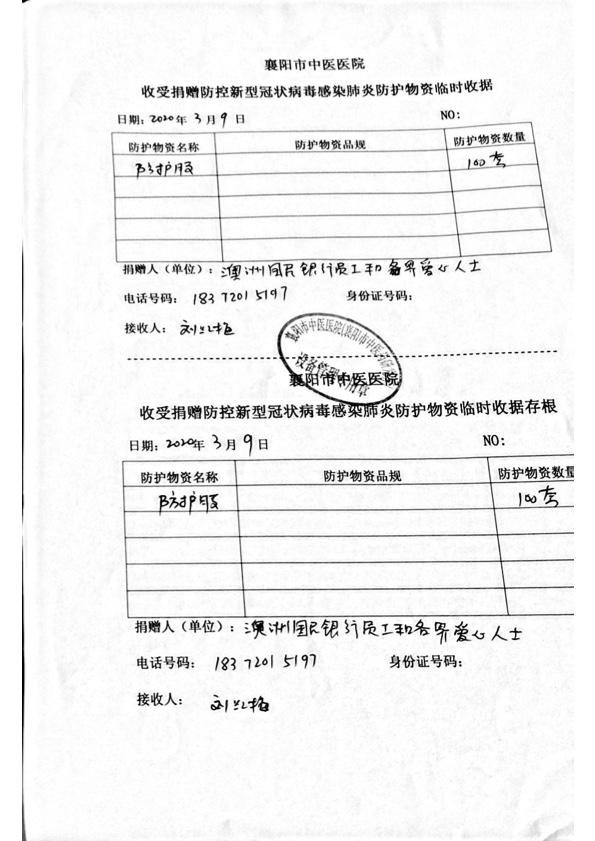 襄阳市中医医院
收受捐赠防控新型冠状病毒感染肺炎防护物资临时收据
日期：2020年 3月 9日 NO：
防护物资名称 防护物资品规 防护物资数量
防护服 100套
捐赠人（单位）：澳洲国民银行员工和各界爱心人士
电话号码： 183 7201 5197 身份证号码：
接收人： 刘兰梅
襄阳市中医医院
收受捐赠防控新型冠状病毒感染肺炎防护物资临时收据存根
日期：2020年 3月 9日 NO：
防护物资名称 防护物资品规 防护物资数量
防护服 100套
捐赠人（单位）：澳洲国民银行员工和各界爱心人士
电话号码： 183 7201 5197 身份证号码：
接收人： 刘兰梅